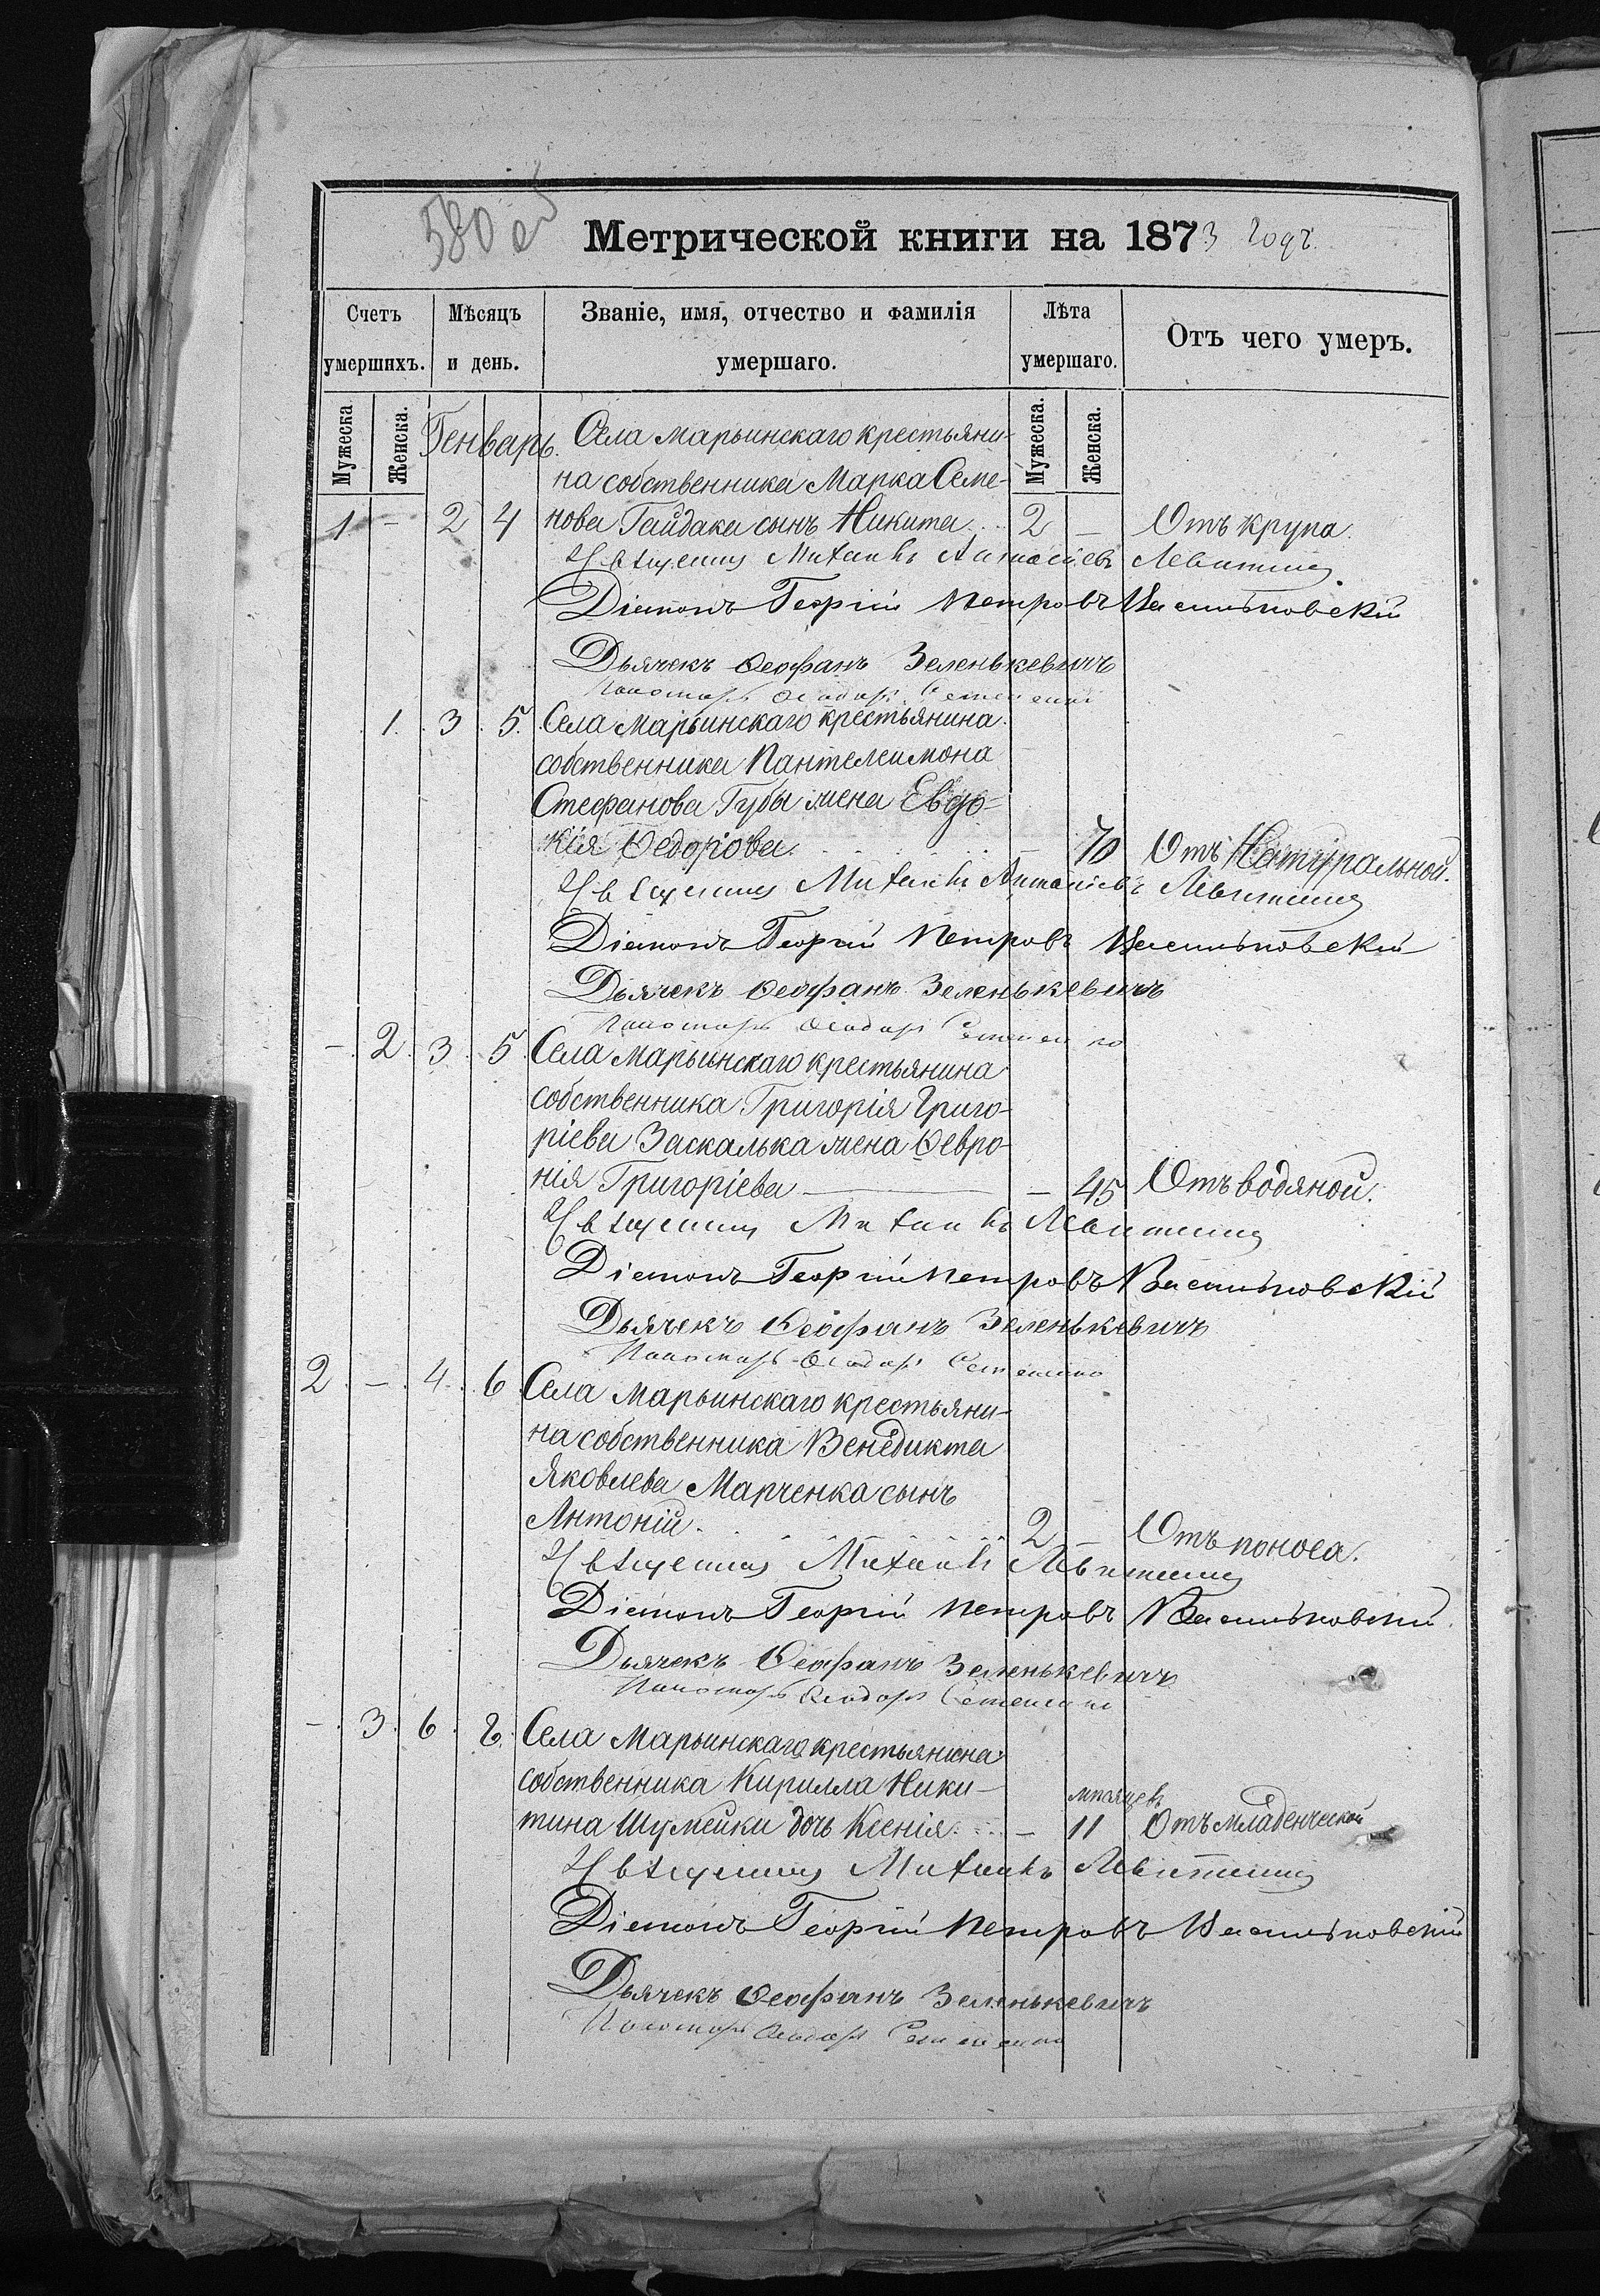 580 об
Метрической книги на 1873 года.
Счетъ умершихъ.
Мѣсяцъ и день.
Званіе, имя, отчество и фамилія умершаго.
Лѣта умершаго.
Отъ чего умеръ.
Мужеска
Женска.
Генварь.
Мужеска.
Женска.
Села Марьинскаго крестьяни-
на собственника Марка Семе-
1 - 2 4 нова Гайдака сынъ Никита. 2 - Отъ крупа.
Священникъ Михаилъ Левитскій
Діаконъ Георгій Петровъ Васильковскій
Дьячекъ Ѳеофанъ Зеленькевичъ
Пономарь Ѳеодоръ
1. 3. 5. Села Марьинскаго крестьянина
собственника Пантелеимона
Стефанова Губы жена Евдо-
кія Ѳедорова. 70 Отъ Натуральной.
Священникъ Михаилъ Левитскій
Діаконъ Георгій Петровъ Васильковскій
Дьячекъ Ѳеофанъ Зеленькевичъ
Пономарь Ѳеодоръ
- 2. 3. 5. Села Марьинскаго крестьянина
собственника Григорія Григо-
ріева Заскалька жена Ѳевро-
нія Григоріева - 45 Отъ водяной.
Священникъ Михаилъ Левитскій
Діаконъ Георгій Петровъ Васильковскій
Дьячекъ Ѳеофанъ Зеленькевичъ
Пономарь Ѳеодоръ
2. - 4. 6. Села Марьинскаго крестьяни-
на собственника Венедикта
Яковлева Марченка сынъ
Антоній. 2 - Отъ поноса.
Священникъ Михаилъ Левитскій
Діаконъ Георгій Петровъ Васильковскій.
Дьячекъ Ѳеофанъ Зеленькевичъ
Пономарь Ѳеодоръ
- 3. 6. 8. Села Марьинскаго крестьянина
собственника Кирилла Ники-
мѣсяцевъ
тина Шумейки дочь Ксенія. - 11 Отъ младенческой
Священникъ Михаилъ Левитскій
Діаконъ Георгій Петровъ Васильковскій
Дьячекъ Ѳеофанъ Зеленькевичъ
Пономарь Ѳеодоръ